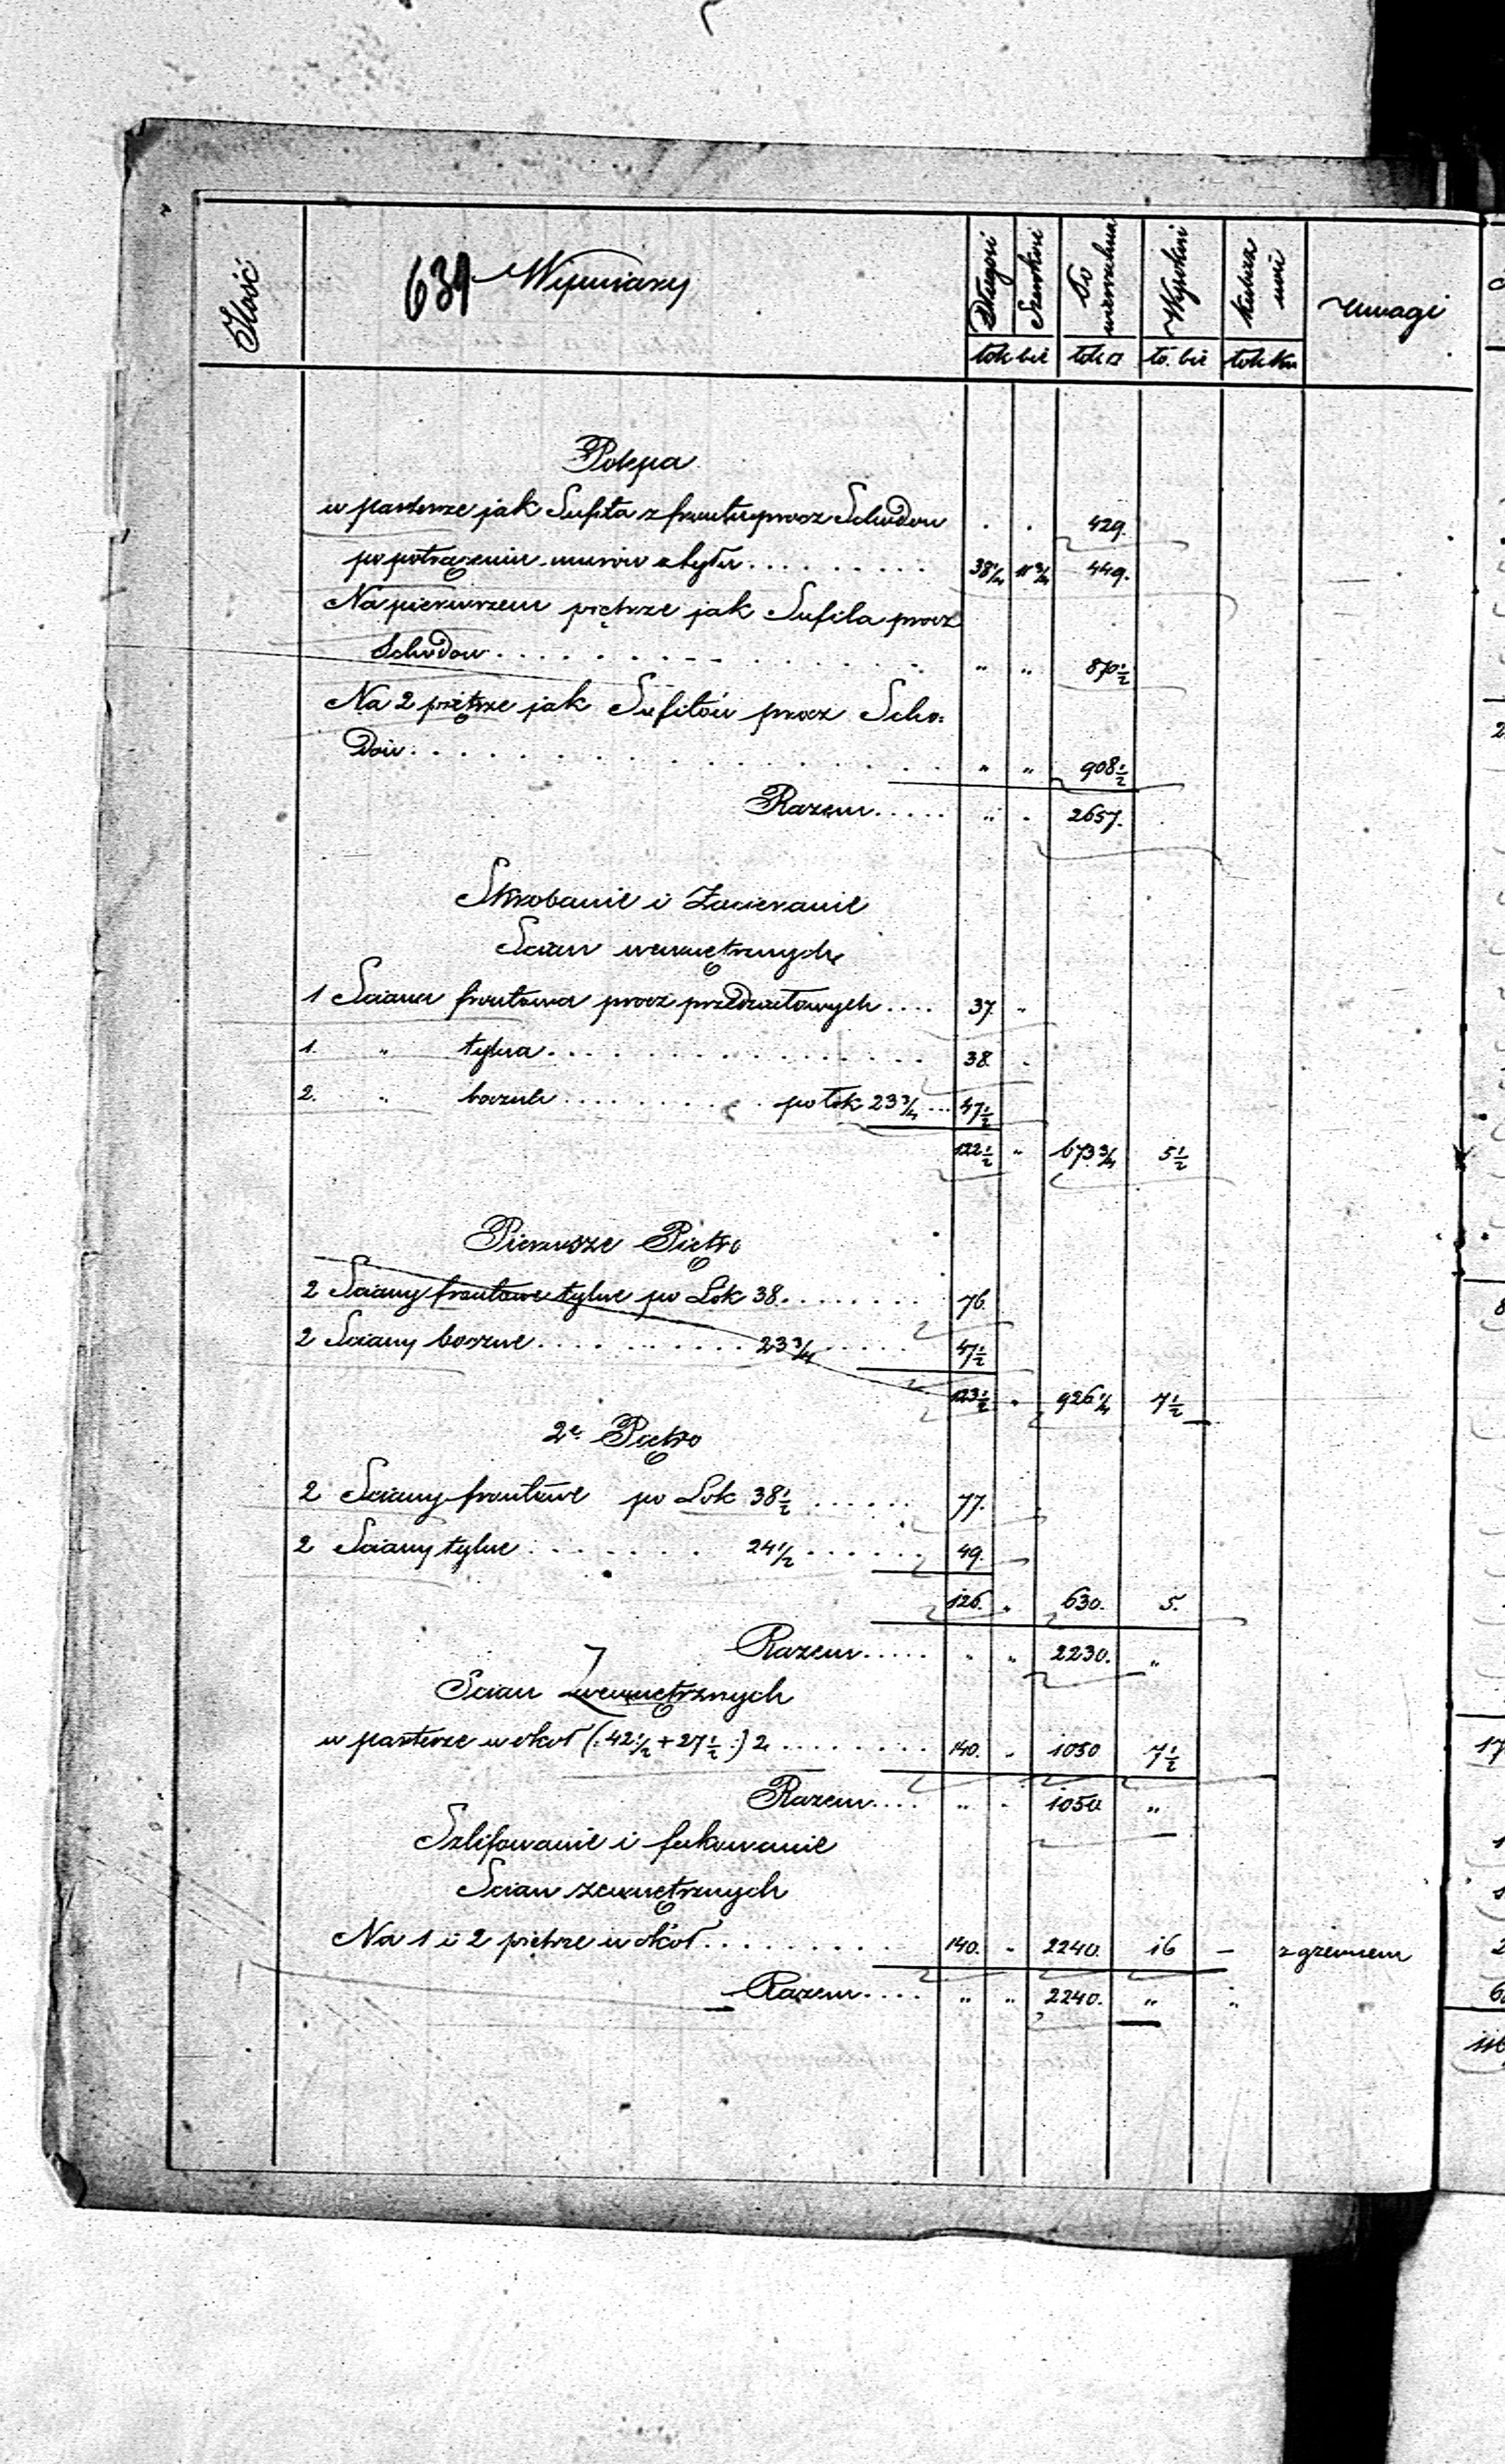 Ilość 639 Wymiary Długość Szerokość Po wierzchnia Wysokość Kubicz ność Uwagi
łok bie łok □ ło. bie łok Ku
Polepa
w parterze jak Sufita z frontu procz Schodow . . 429.
po potrąceniu murów z tyłu 38 1/4 11 3/4 449.
Na pierwszem piętrze jak Sufita procz
Schodow " " 870 1/2
Na 2 piętrze jak Sufitów procz Scho=
dów " " 908 1/2
Razem " . 2657.
Skrobanie i Zacieranie
Scian wewnętrznych
1 Sciana frontowa procz przedziałowych 37. "
1. " tylna 38. .
2. " boczne po łok 23 3/4 47 1/2
122 1/2 " 673 3/4 5 1/2
Pierwsze Piętro
2 Sciany frontowe tylne po Łok 38. 76.
2 Sciany boczne 23 3/4 47 1/2
123 1/2 " 926 1/4 7 1/2
2e Piętro
2 Sciany frontowe po Łok 38 1/2 77.
2 Sciany tylne 24 1/2 49.
126. " 630. 5.
Razem " " 2230. "
Scian zewnętrznych
w parterze w okoł (: 42 1/2 + 27 1/2 :) 2 140. " 1050 7 1/2
Razem " . 1050 "
Szlifowanie i fukowanie
Scian zewnętrznych
Na 1 i 2 piętrze w okoł 140. " 2240. 16 — z gzemsem
Razem " " 2240. " "